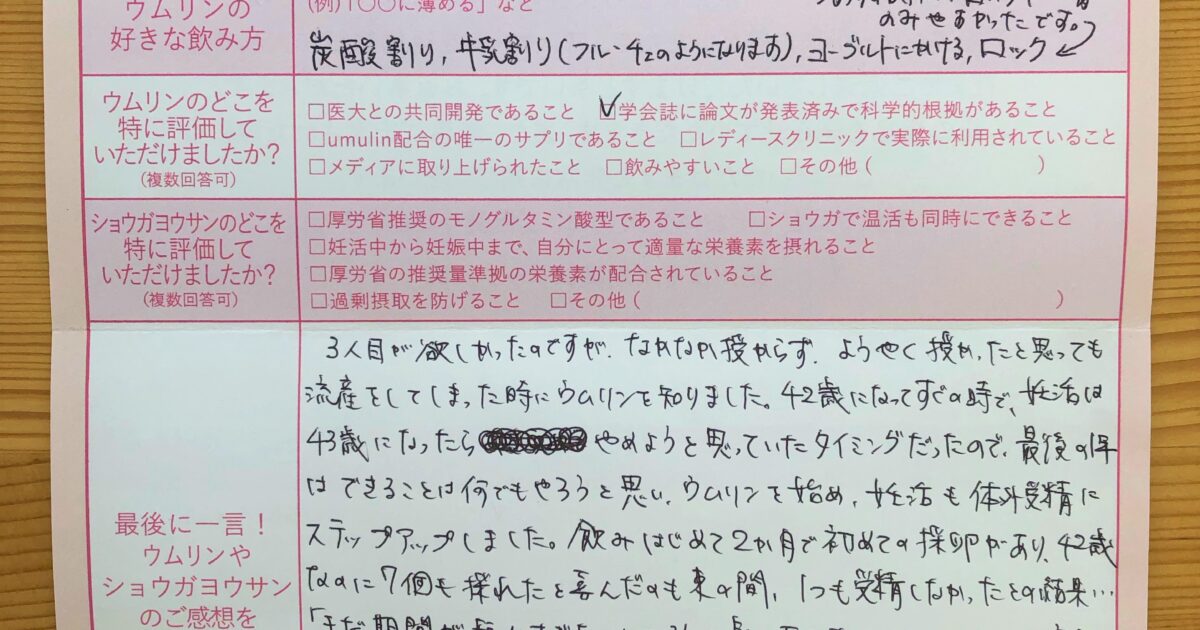 ウムリンの
好きな飲み方
(例)「〇〇に薄める」など
のみやすかったです。
炭酸割り, 牛乳割り(フルーチェのようになります), ヨーグルトにかける, ロック
ウムリンのどこを
特に評価して
いただけましたか?
(複数回答可)
□医大との共同開発であること ☑学会誌に論文が発表済みで科学的根拠があること
□umulin配合の唯一のサプリであること □レディースクリニックで実際に利用されていること
□メディアに取り上げられたこと □飲みやすいこと □その他 ( )
ショウガヨウサンのどこを
特に評価して
いただけましたか?
(複数回答可)
□厚労省推奨のモノグルタミン酸型であること □ショウガで温活も同時にできること
□妊活中から妊娠中まで、自分にとって適量な栄養素を摂れること
□厚労省の推奨量準拠の栄養素が配合されていること
□過剰摂取を防げること □その他 ( )
最後に一言!
ウムリンや
ショウガヨウサン
のご感想を
3人目が欲しかったのですが、なかなか授からず、ようやく授かったと思っても
流産をしてしまった時にウムリンを知りました。42歳になってすぐの時で、妊活は
43歳になったらやめようと思っていたタイミングだったので、最後の1年
はできることは何でもやろうと思い、ウムリンを始め、妊活も体外受精に
ステップアップしました。飲みはじめて2か月で初めての採卵があり、42歳
なのに7個も採れたと喜んだのも束の間、1つも受精しなかったとの結果…
「まだ期間が